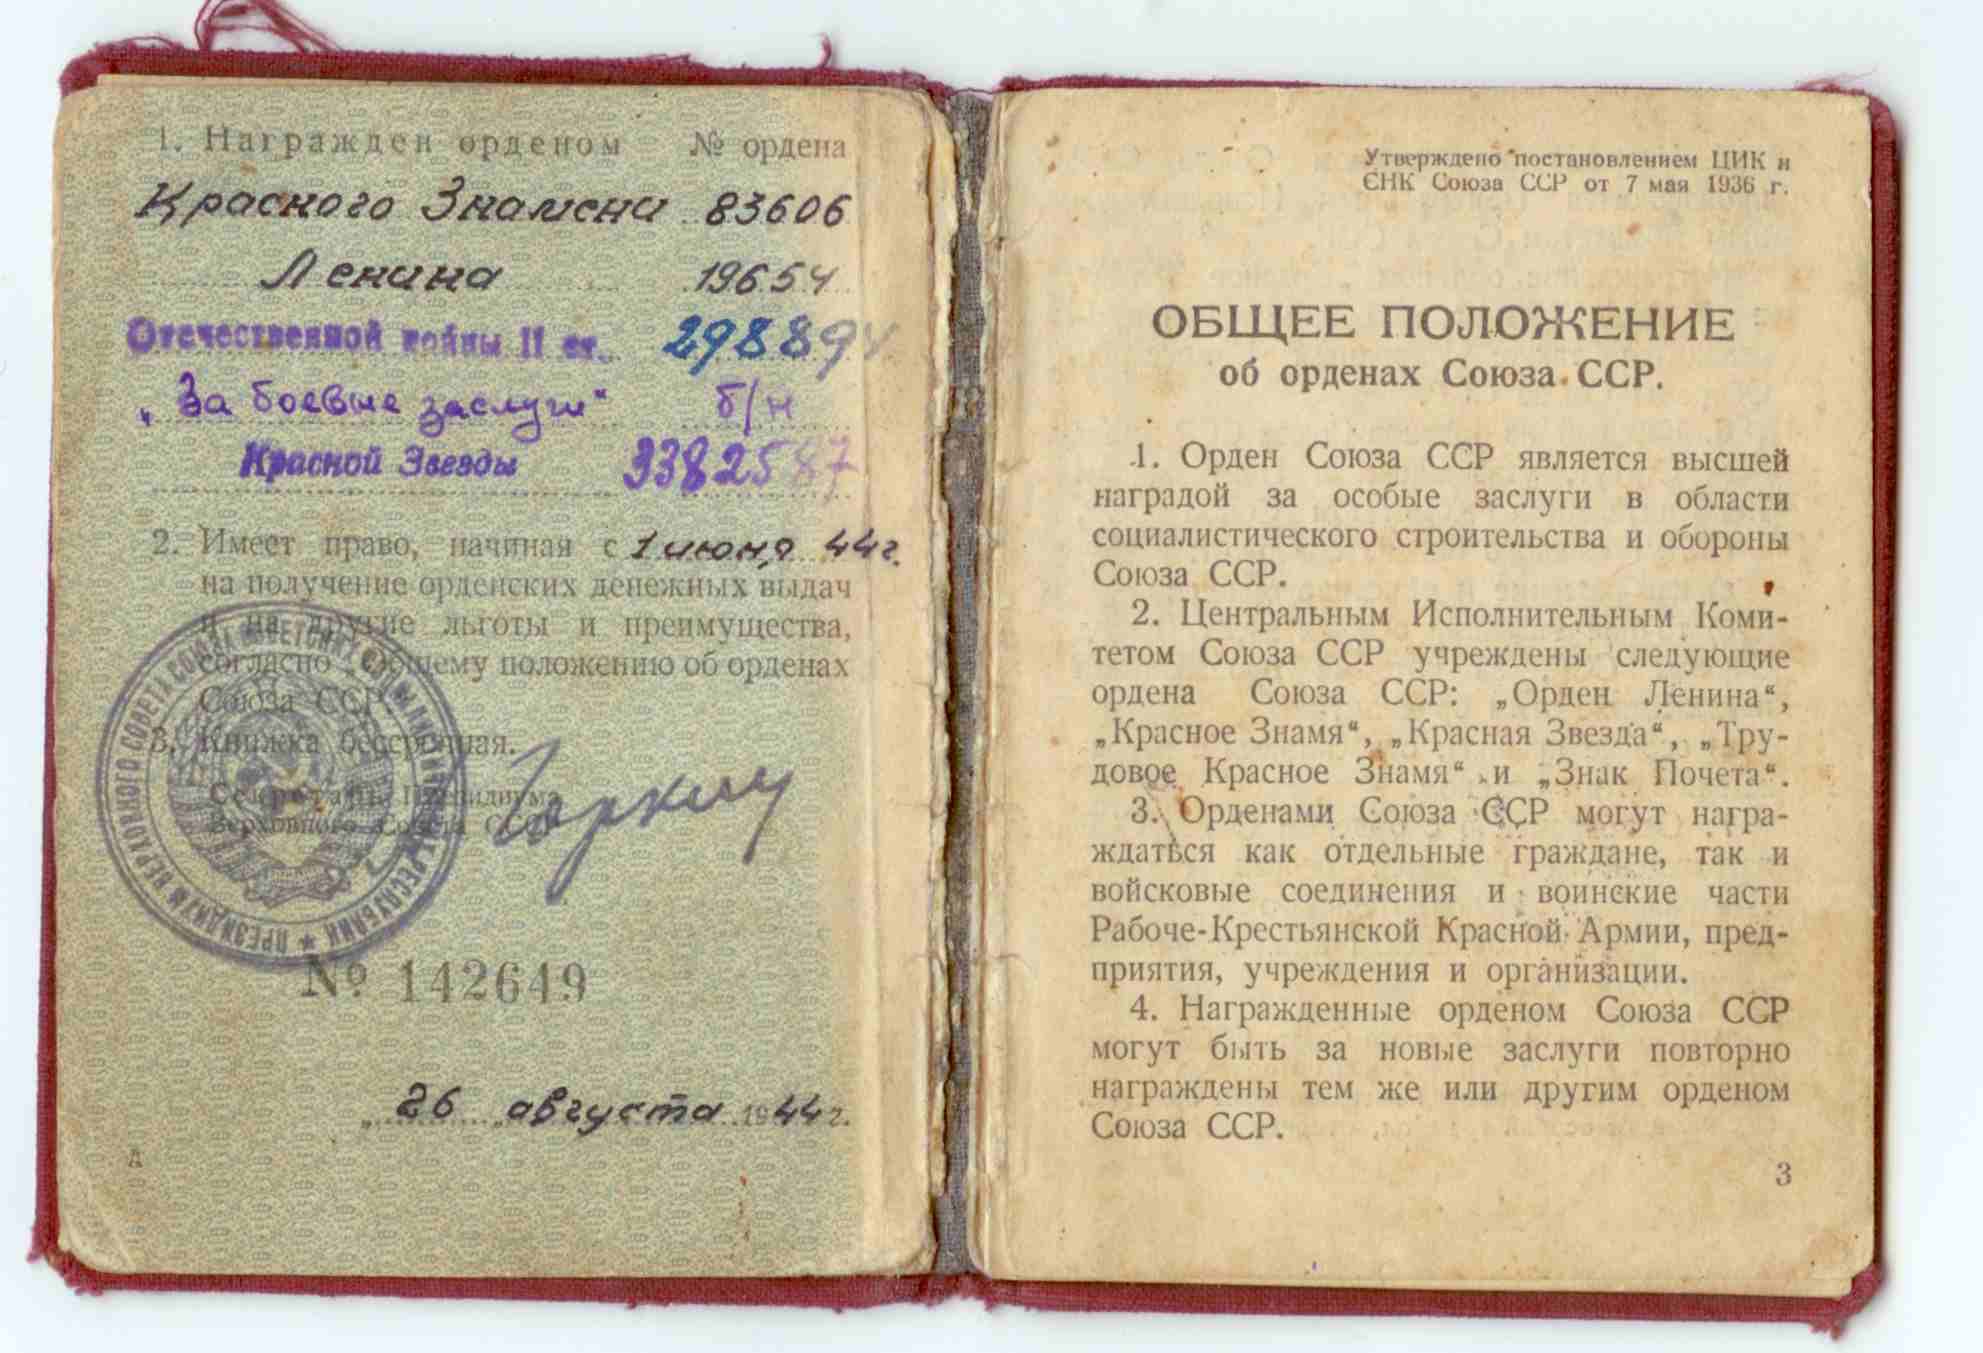 1. Награжден орденом № ордена
Красного Знамени 83606
Ленина 19654
Отечественной войны II ст. 298894
„За боевые заслуги“ б/н
Красной Звезды 3382587
2. Имеет право, начиная с 1 июня 44 г.
на получение орденских денежных выдач
и на другие льготы и преимущества,
согласно „Общему положению об орденах
Союза ССР.
3. Книжка бессрочная.
Секретарь Президиума
Верховного Совета СССР
ПРЕЗИДИУМ ВЕРХОВНОГО СОВЕТА СОЮЗА СОВЕТСКИХ СОЦИАЛИСТИЧЕСКИХ РЕСПУБЛИК ★
№ 142649
„26 „ августа 1944 г.
А
Утверждено постановлением ЦИК и
СНК Союза ССР от 7 мая 1936 г.
ОБЩЕЕ ПОЛОЖЕНИЕ
об орденах Союза ССР.
1. Орден Союза ССР является высшей
наградой за особые заслуги в области
социалистического строительства и обороны
Союза ССР.
2. Центральным Исполнительным Коми-
тетом Союза ССР учреждены следующие
ордена Союза ССР: „Орден Ленина“,
„Красное Знамя“, „Красная Звезда“, „Тру-
довое Красное Знамя“ и „Знак Почета“.
3. Орденами Союза ССР могут награ-
ждаться как отдельные граждане, так и
войсковые соединения и воинские части
Рабоче-Крестьянской Красной Армии, пред-
приятия, учреждения и организации.
4. Награжденные орденом Союза ССР
могут быть за новые заслуги повторно
награждены тем же или другим орденом
Союза ССР.
3